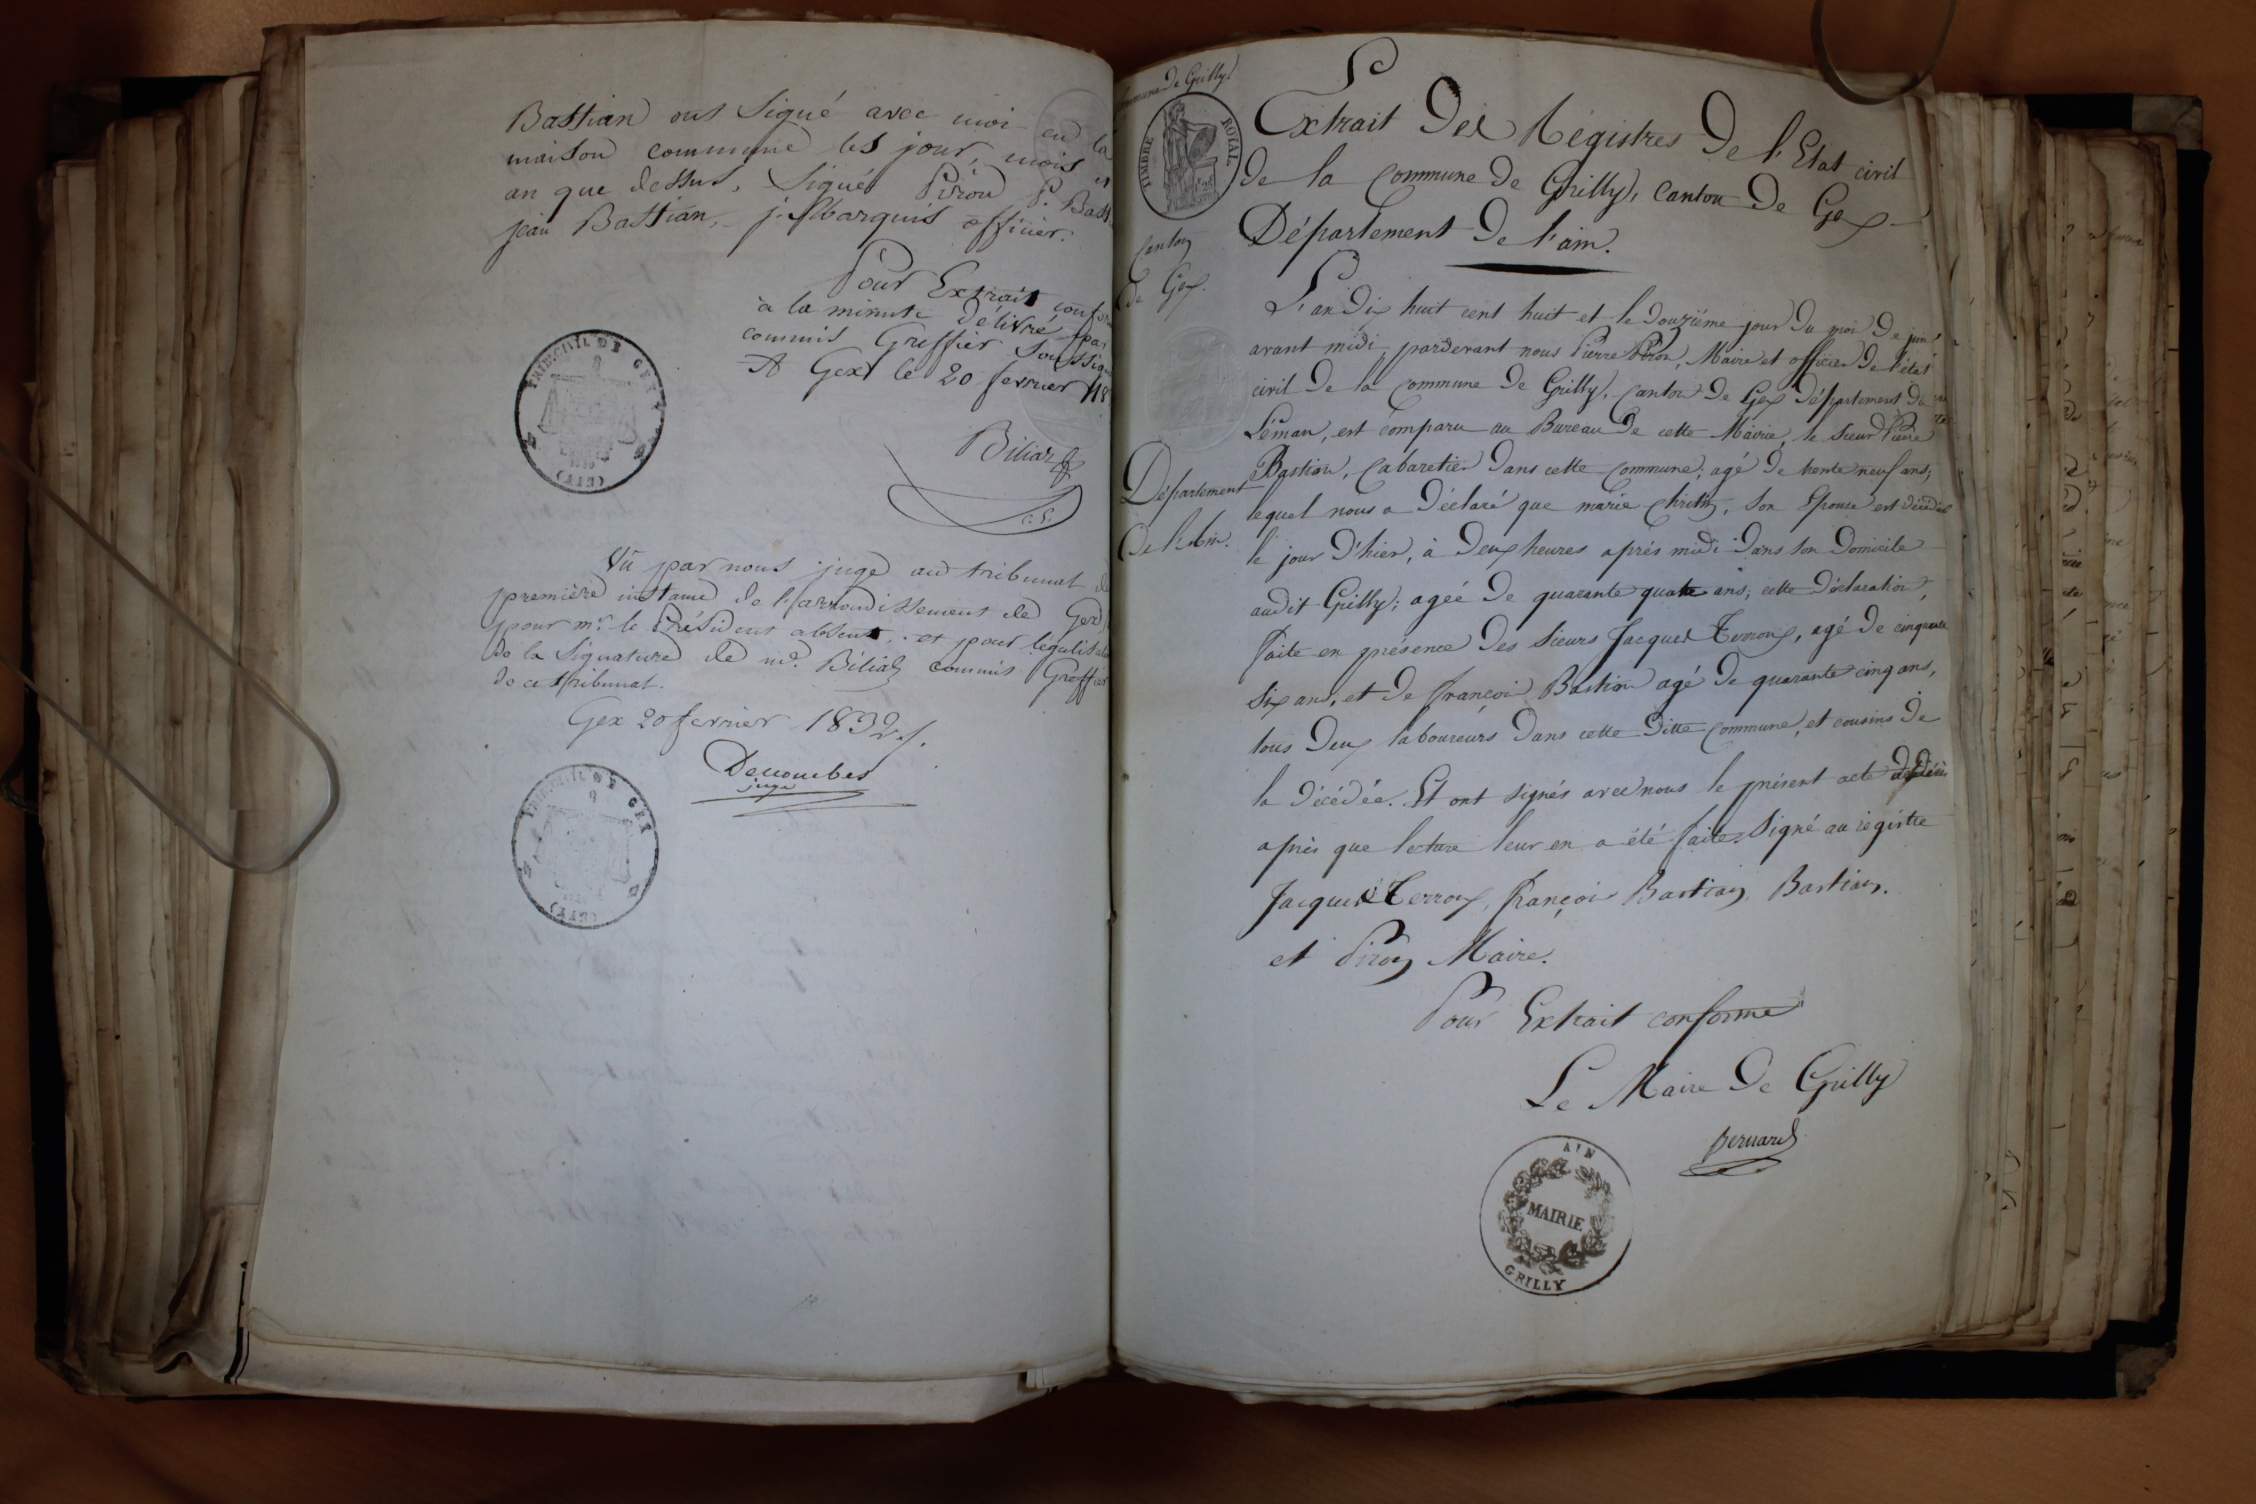 Bastian ont signé avec moi en la
maison commune les jour, mois et
an que dessus, Signés Pirou P. Bast
jean Bastian, j. Marquis officier.
Pour Extrait confor
à la minute délivré par
commis Greffier soussign
A Gex le 20 fevrier 18
Biliaz
c. G.
TRIB. CIVIL DE GEX
Vû par nous juge au tribunal de
première instance de l'arrondissement de Gex
pour mr. le Président absent et pour légalisat
de la signature de md. Biliaz commis Greffier
de ce tribunal.
Gex 20 fevrier 1832
Descombes
juge
TRIB. CIVIL DE GEX
Commune de Grilly
TIMBRE ROYAL
Canton
de Gex.
Département
de l'Ain.
Extrait Des Régistres De l'Etat civil
de la Commune De Grilly, Canton De Gex
Département De l'ain.
L'an Dix huit cent huit et le Douzième jour Du moi De juin,
avant midi, pardevant nous Pierre Piron, Maire et officier De l'état
civil De la Commune De Grilly, Canton De Gex Département Du
Léman, est comparu au Bureau De cette Mairie, le sieur Pierre
Bastian, Cabaretier Dans cette commune, agé De trente neuf ans;
lequel nous a Déclaré que marie , son Epouse est décédée
le jour D'hier, à Deux heures après midi Dans son Domicile
audit Grilly; agée De quarante quatre ans; cette Déclaration,
faite en présence Des sieurs Jacques Terroux, agé De cinquante
six ans, et De françois Bastian agé De quarante cinq ans,
tous Deux laboureurs Dans cette Ditte Commune, et cousins De
la Décédée. Et ont signés avec nous le présent acte
après que lecture leur en a été faite. Signé au registre
Jacques Terroux, françois Bastian, Bastian.
et Piron Maire.
Pour Extrait conforme
Le Maire De Grilly
Bernard
AIN
MAIRIE
GRILLY